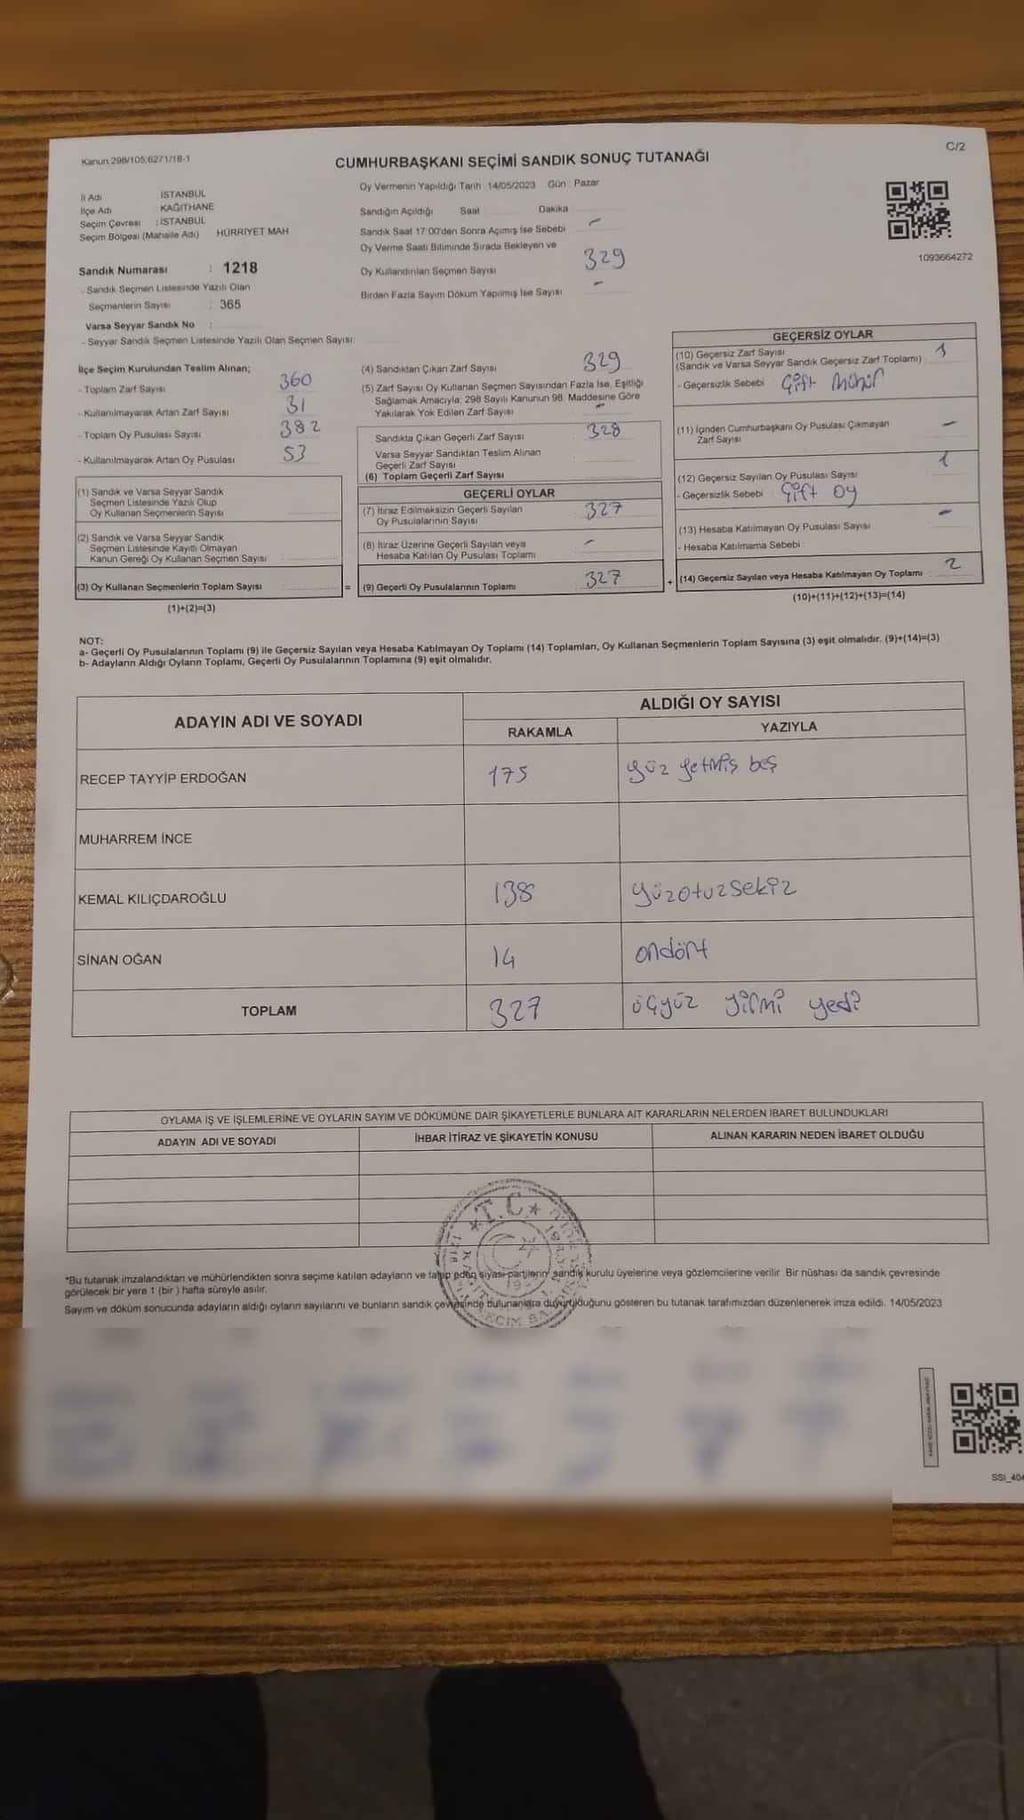 Kanun 298/105,6271/18-1
CUMHURBAŞKANI SEÇİMİ SANDIK SONUÇ TUTANAĞI
C/2
İl Adı : İSTANBUL
İlçe Adı : KAĞITHANE
Seçim Çevresi : İSTANBUL
Seçim Bölgesi (Mahalle Adı) HÜRRİYET MAH
Sandık Numarası : 1218
- Sandık Seçmen Listesinde Yazılı Olan
Seçmenlerin Sayısı : 365
Varsa Seyyar Sandık No :
- Seyyar Sandık Seçmen Listesinde Yazılı Olan Seçmen Sayısı:
Oy Vermenin Yapıldığı Tarih :14/05/2023 Gün : Pazar
Sandığın Açıldığı Saat Dakika
Sandık Saat 17:00'den Sonra Açımış İse Sebebi -
Oy Verme Saati Bitiminde Sırada Bekleyen ve
Oy Kullandırılan Seçmen Sayısı 329
Birden Fazla Sayım Döküm Yapılmış İse Sayısı -
1093664272
İlçe Seçim Kurulundan Teslim Alınan;
- Toplam Zarf Sayısı 360
- Kullanılmayarak Artan Zarf Sayısı 31
- Toplam Oy Pusulası Sayısı 382
- Kullanılmayarak Artan Oy Pusulası 53
(1) Sandık ve Varsa Seyyar Sandık
Seçmen Listesinde Yazılı Olup
Oy Kullanan Seçmenlerin Sayısı
(2) Sandık ve Varsa Seyyar Sandık
Seçmen Listesinde Kayıtlı Olmayan
Kanun Gereği Oy Kullanan Seçmen Sayısı
(3) Oy Kullanan Seçmenlerin Toplam Sayısı
(1)+(2)=(3)
(4) Sandıktan Çıkan Zarf Sayısı 329
(5) Zarf Sayısı Oy Kullanan Seçmen Sayısından Fazla İse, Eşitliği
Sağlamak Amacıyla; 298 Sayılı Kanunun 98. Maddesine Göre
Yakılarak Yok Edilen Zarf Sayısı -
Sandıkta Çıkan Geçerli Zarf Sayısı 328
Varsa Seyyar Sandıktan Teslim Alınan
Geçerli Zarf Sayısı
(6) Toplam Geçerli Zarf Sayısı
GEÇERLİ OYLAR
(7) İtiraz Edilmeksizin Geçerli Sayılan
Oy Pusulalarının Sayısı 327
(8) İtiraz Üzerine Geçerli Sayılan veya
Hesaba Katılan Oy Pusulası Toplamı -
= (9) Geçerli Oy Pusulalarının Toplamı 327
GEÇERSİZ OYLAR
(10) Geçersiz Zarf Sayısı 1
(Sandık ve Varsa Seyyar Sandık Geçersiz Zarf Toplamı)
- Geçersizlik Sebebi Çift Mühür
(11) İçinden Cumhurbaşkanı Oy Pusulası Çıkmayan
Zarf Sayısı -
(12) Geçersiz Sayılan Oy Pusulası Sayısı 1
- Geçersizlik Sebebi Çift oy
(13) Hesaba Katılmayan Oy Pusulası Sayısı -
- Hesaba Katılmama Sebebi :
+ (14) Geçersiz Sayılan veya Hesaba Katılmayan Oy Toplamı 2
(10)+(11)+(12)+(13)=(14)
NOT:
a- Geçerli Oy Pusulalarının Toplamı (9) ile Geçersiz Sayılan veya Hesaba Katılmayan Oy Toplamı (14) Toplamları, Oy Kullanan Seçmenlerin Toplam Sayısına (3) eşit olmalıdır. (9)+(14)=(3)
b- Adayların Aldığı Oyların Toplamı, Geçerli Oy Pusulalarının Toplamına (9) eşit olmalıdır.
ADAYIN ADI VE SOYADI
ALDIĞI OY SAYISI
RAKAMLA YAZIYLA
RECEP TAYYİP ERDOĞAN 175 yüz yetmiş beş
MUHARREM İNCE
KEMAL KILIÇDAROĞLU 138 yüzotuzsekiz
SİNAN OĞAN 14 ondört
TOPLAM 327 üçyüz yirmi yedi
OYLAMA İŞ VE İŞLEMLERİNE VE OYLARIN SAYIM VE DÖKÜMÜNE DAİR ŞİKAYETLERLE BUNLARA AİT KARARLARIN NELERDEN İBARET BULUNDUKLARI
ADAYIN ADI VE SOYADI İHBAR İTİRAZ VE ŞİKAYETİN KONUSU ALINAN KARARIN NEDEN İBARET OLDUĞU
★T.C.★
*Bu tutanak imzalandıktan ve mühürlendikten sonra seçime katılan adayların ve takip eden siyasi partilerin sandık kurulu üyelerine veya gözlemcilerine verilir. Bir nüshası da sandık çevresinde
görülecek bir yere 1 (bir ) hafta süreyle asılır.
Sayım ve döküm sonucunda adayların aldığı oyların sayılarını ve bunların sandık çevresinde bulunanlara duyurulduğunu gösteren bu tutanak tarafımızdan düzenlenerek imza edildi. 14/05/2023